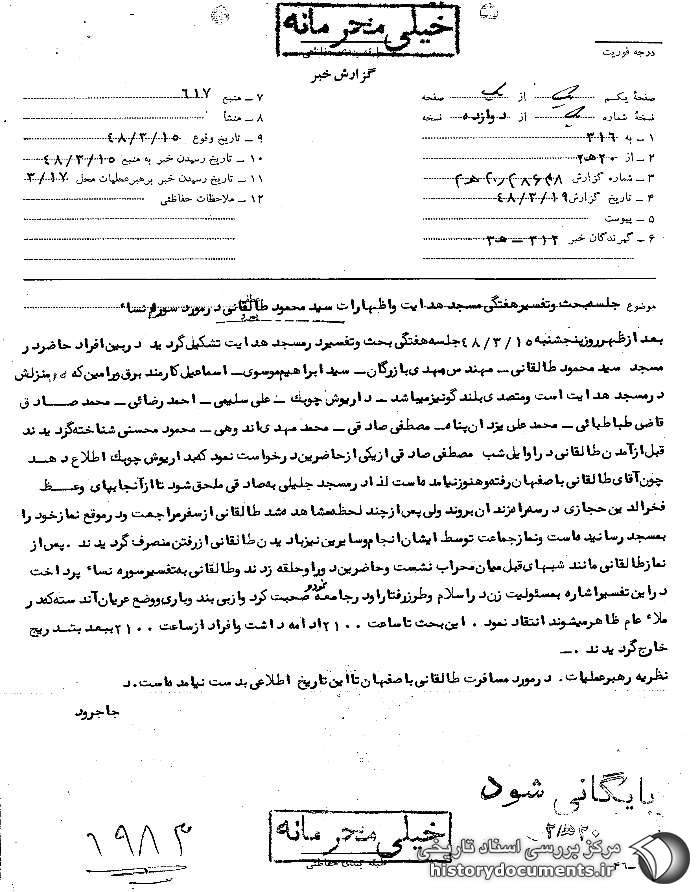 خیلی محرمانه
طبقه بندی حفاظتی
درجه فوریت
گزارش خبر
صفحهٔ یکم از یک صفحه
نسخهٔ شماره یک از دوازده نسخه
۱ ـ به ۳۱۶
۲ ـ از ۲۰ هـ ۲
۳ ـ شماره گزارش
۴ ـ تاریخ گزارش ۴۸/۳/۱۹
۵ ـ پیوست
۶ ـ گیرندگان خبر ۳۱۲ ـ هـ ۳
۷ ـ منبع ۶۱۷
۸ ـ منشأ
۹ ـ تاریخ وقوع ۴۸/۳/۱۵
۱۰ ـ تاریخ رسیدن خبر به منبع ۴۸/۳/۱۵
۱۱ ـ تاریخ رسیدن خبر برهبر عملیات محل ۳/۱۷
۱۲ ـ ملاحظات حفاظتی
موضوع جلسه بحث و تفسیر هفتگی مسجد هدایت و اظهارات سید محمود طالقانی در مورد سوره نساء
بعد از ظهر روز پنجشنبه ۴۸/۳/۱۵ جلسه هفتگی بحث و تفسیر در مسجد هدایت تشکیل گردید در بین افراد حاضر در
مسجد سید محمود طالقانی ـ مهندس مهدی بازرگان ـ سید ابراهیم موسوی ـ اسماعیل کارمند برق ورامین که منزلش
در مسجد هدایت است و متصدی بلندگو نیز میباشد ـ داریوش چوبک ـ علی سلیمی ـ احمد رضائی ـ محمد صادق
قاضی طباطبائی ـ محمد علی یزدان پناه ـ مصطفی صادقی ـ محمد مهدی اندوهی ـ محمود محسنی شناخته گردیدند
قبل از آمدن طالقانی در اوایل شب مصطفی صادقی از یکی از حاضرین درخواست نمود که بداریوش چوبک اطلاع دهد
چون آقای طالقانی باصفهان رفته و هنوز نیامده است لذا در مسجد جلیلی به صادقی ملحق شود تا از آنجا بپای وعظ
فخرالدین حجازی در بروند ولی پس از چند لحظه مشاهده شد طالقانی از سفر مراجعت و در موقع نماز خود را
بمسجد رسانیده است و نماز جماعت توسط ایشان انجام و سایرین نیز با دیدن طالقانی از رفتن منصرف گردیدند . پس از
نماز طالقانی مانند شبهای قبل میان محراب نشست و حاضرین دور او حلقه زدند و طالقانی به تفسیر سوره نساء پرداخت
در این تفسیر اشاره بمسئولیت زن در اسلام و طرز رفتار او در جامعه نمود و صحبت کرد و از بی بند و باری و وضع عریان آن دسته که در
ملاء عام ظاهر میشوند انتقاد نمود . این بحث تا ساعت ۲۱۰۰ ادامه داشت و افراد از ساعت ۲۱۰۰ ببعد بتدریج
خارج گردیدند . ـ
نظریه رهبر عملیات . در مورد مسافرت طالقانی باصفهان تا این تاریخ اطلاعی بدست نیامده است . د
جاجرود
بایگانی شود
۲۰ هـ ۲
خیلی محرمانه
طبقه بندی حفاظتی
۱۹۸۳
۴۶ ـ
مرکز بررسی اسناد تاریخی
historydocuments.ir